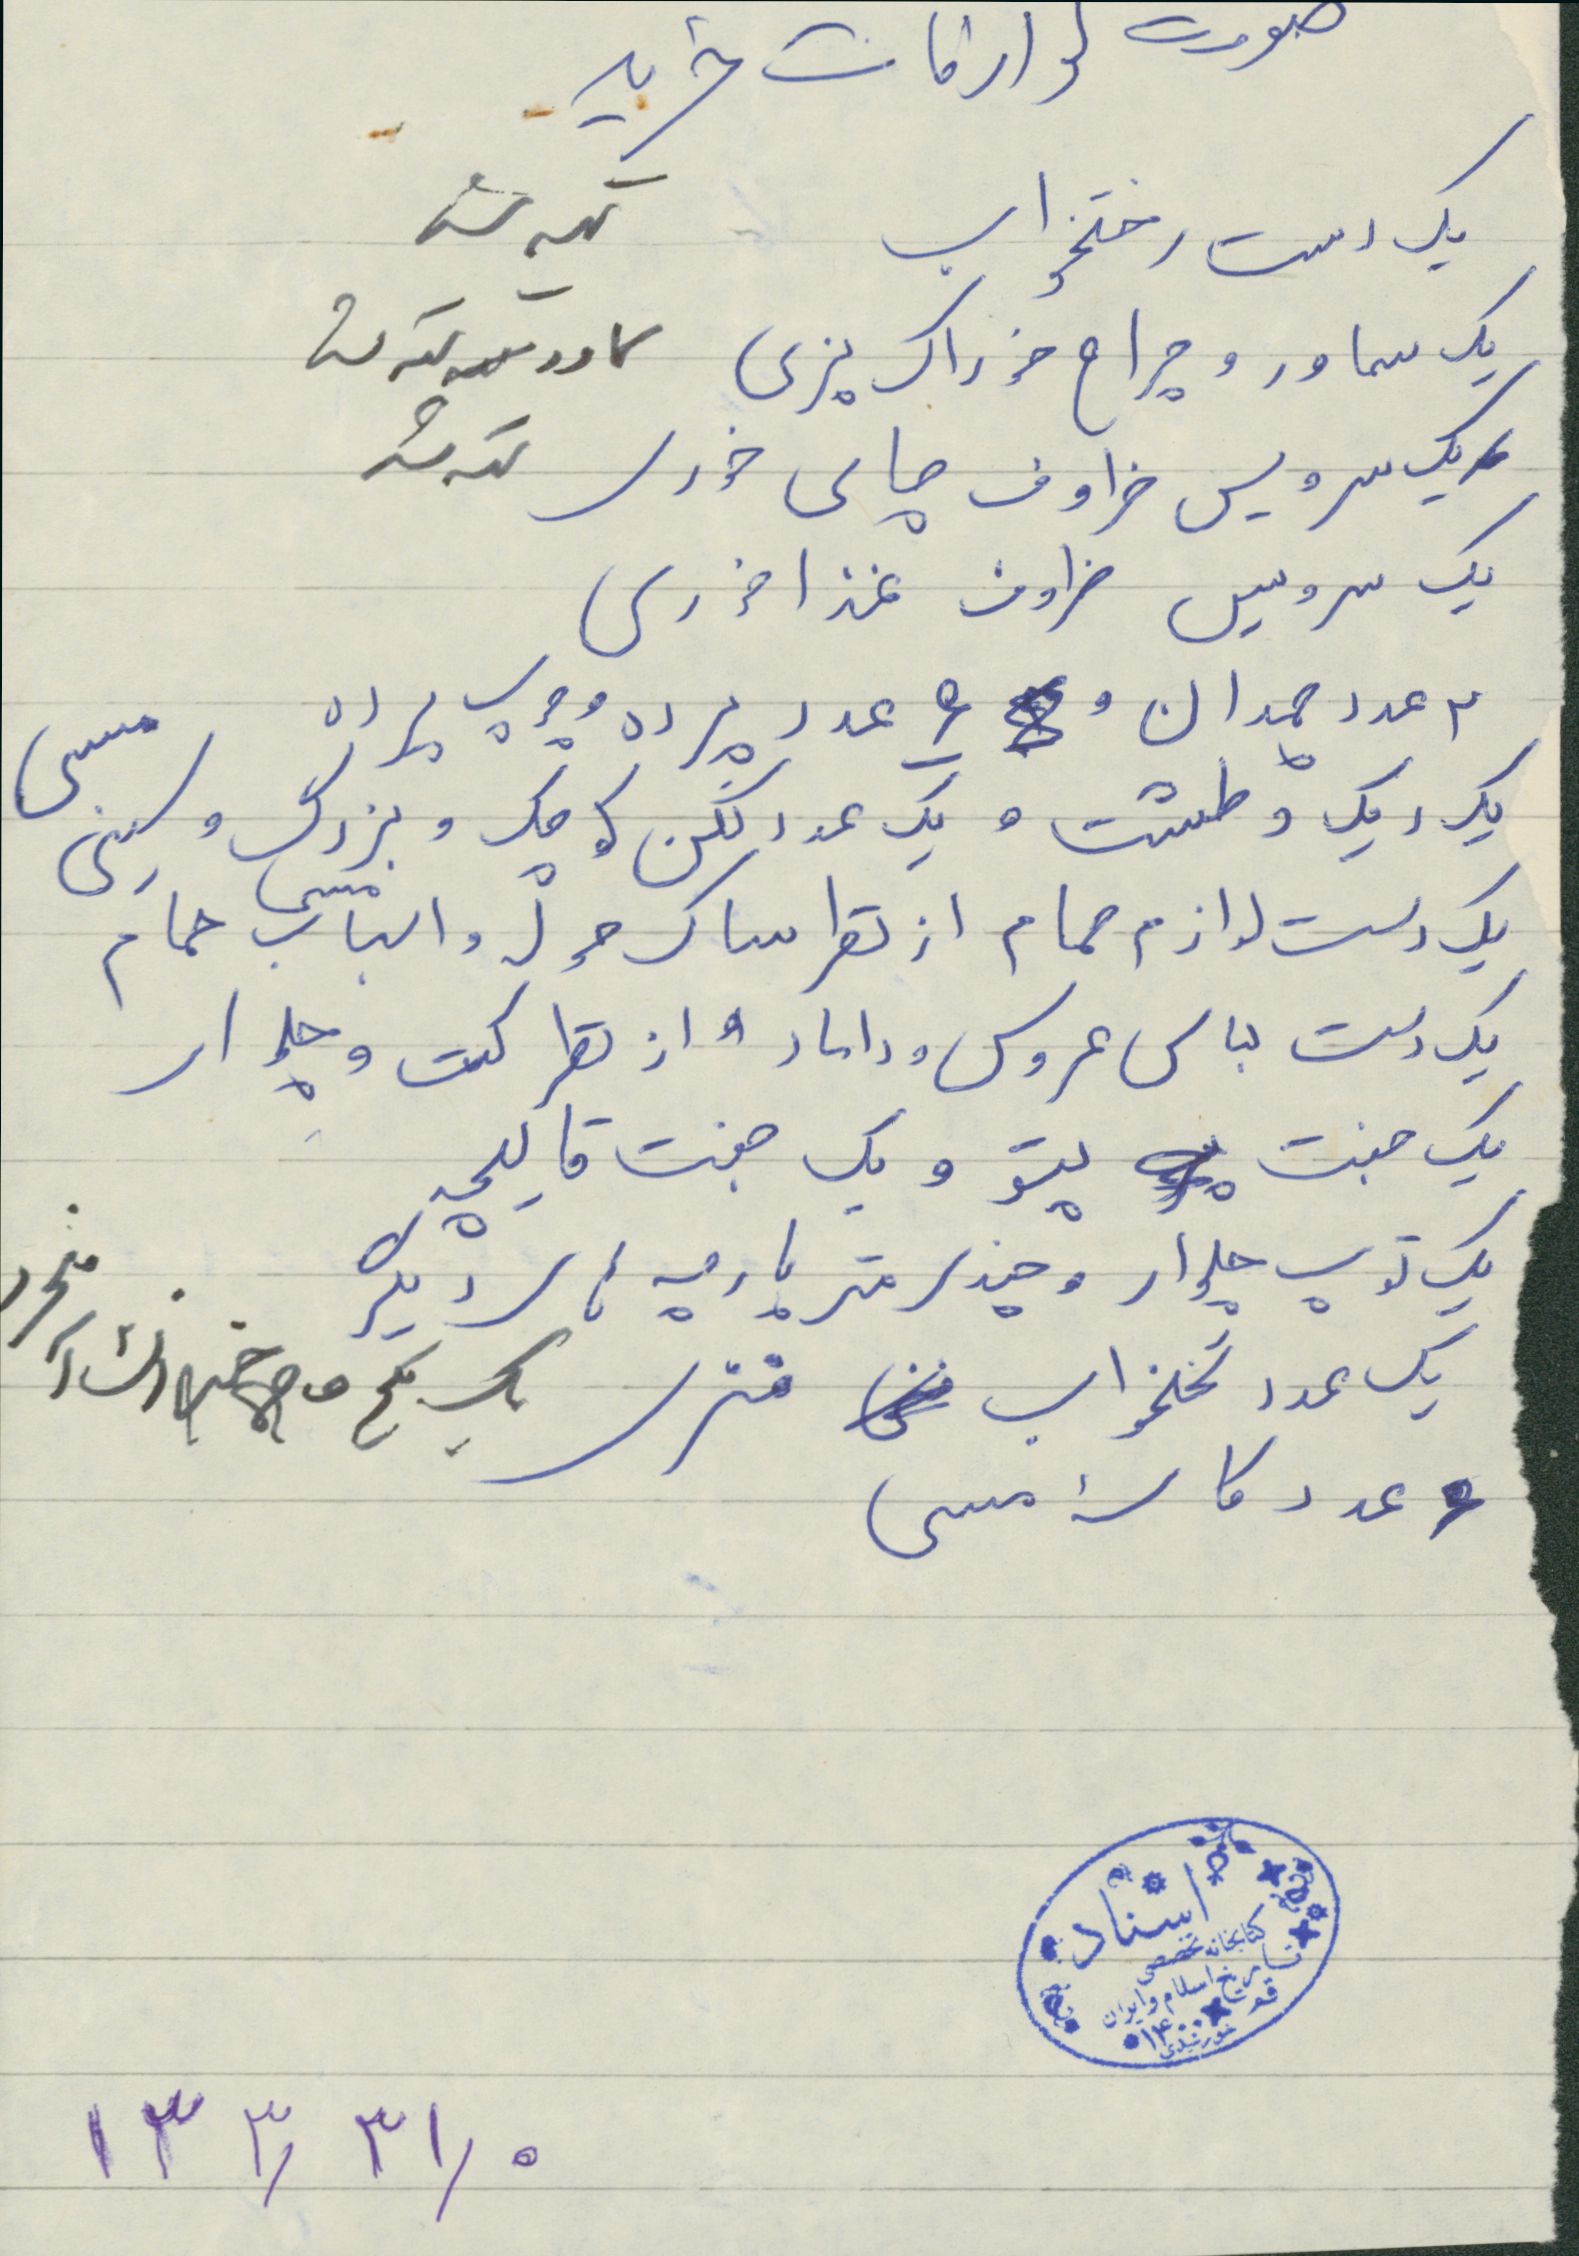 صورت لوازمات خرید
یک دست رختخواب تهیه شد
یک سماور و چراغ خوراک پزی سماور تهیه شد
یک سرویس ظروف چای خوری تهیه شد
یک سرویس ظروف غذا خوری
۲ عدد چمدان و ۶ عدد پرده و چوب پرده
یک دیک و طشت و یک عدد لگن کوچک و بزرگ و سینی مسی
مسی
یک دست لوازم حمام از نظر ساک حوله و اسباب حمام
یک دست لباس عروس و داماد از نظر کت و چلوار
یک جفت پتو و یک جفت قالیچه
یک توپ چلوار و چندی متر پارچه های دیگر
یک عدد تختخواب فنری
۶ عدد کاسه مسی
اسناد
کتابخانه تخصصی
تاریخ اسلام و ایران
قم
۱۴۰۰
خورشیدی
۱۳ ۳/ ۳۱/۰